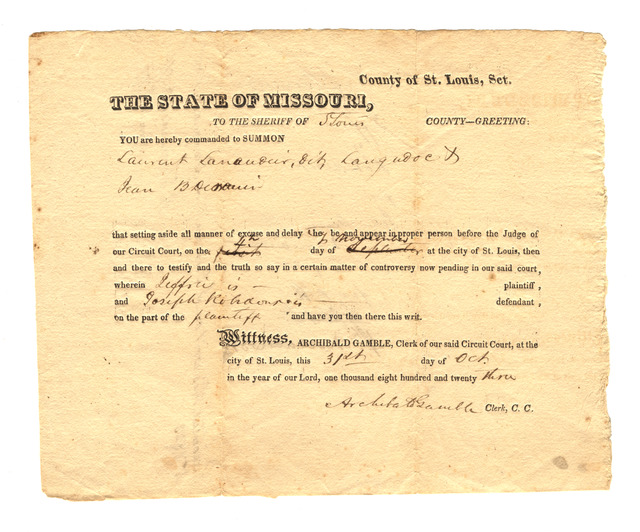 County of St. Louis, Sct.
THE STATE OF MISSOURI,
TO THE SHERIFF OF St Louis COUNTY—GREETING:
YOU are hereby commanded to SUMMON
Laurent dit Languedoc &
Jean B
that setting aside all manner of excuse and delay they be and appear in proper person before the Judge of
our Circuit Court, on the first 4th day of September November at the city of St. Louis, then
and there to testify and the truth so say in a certain matter of controversy now pending in our said court,
wherein Jeffrie is plaintiff,
and Joseph is defendant,
on the part of the plaintiff and have you then there this writ.
Wittness, ARCHIBALD GAMBLE, Clerk of our said Circuit Court, at the
city of St. Louis, this 31st day of Oct
in the year of our Lord, one thousand eight hundred and twenty three
Archibald Gamble Clerk, C. C.